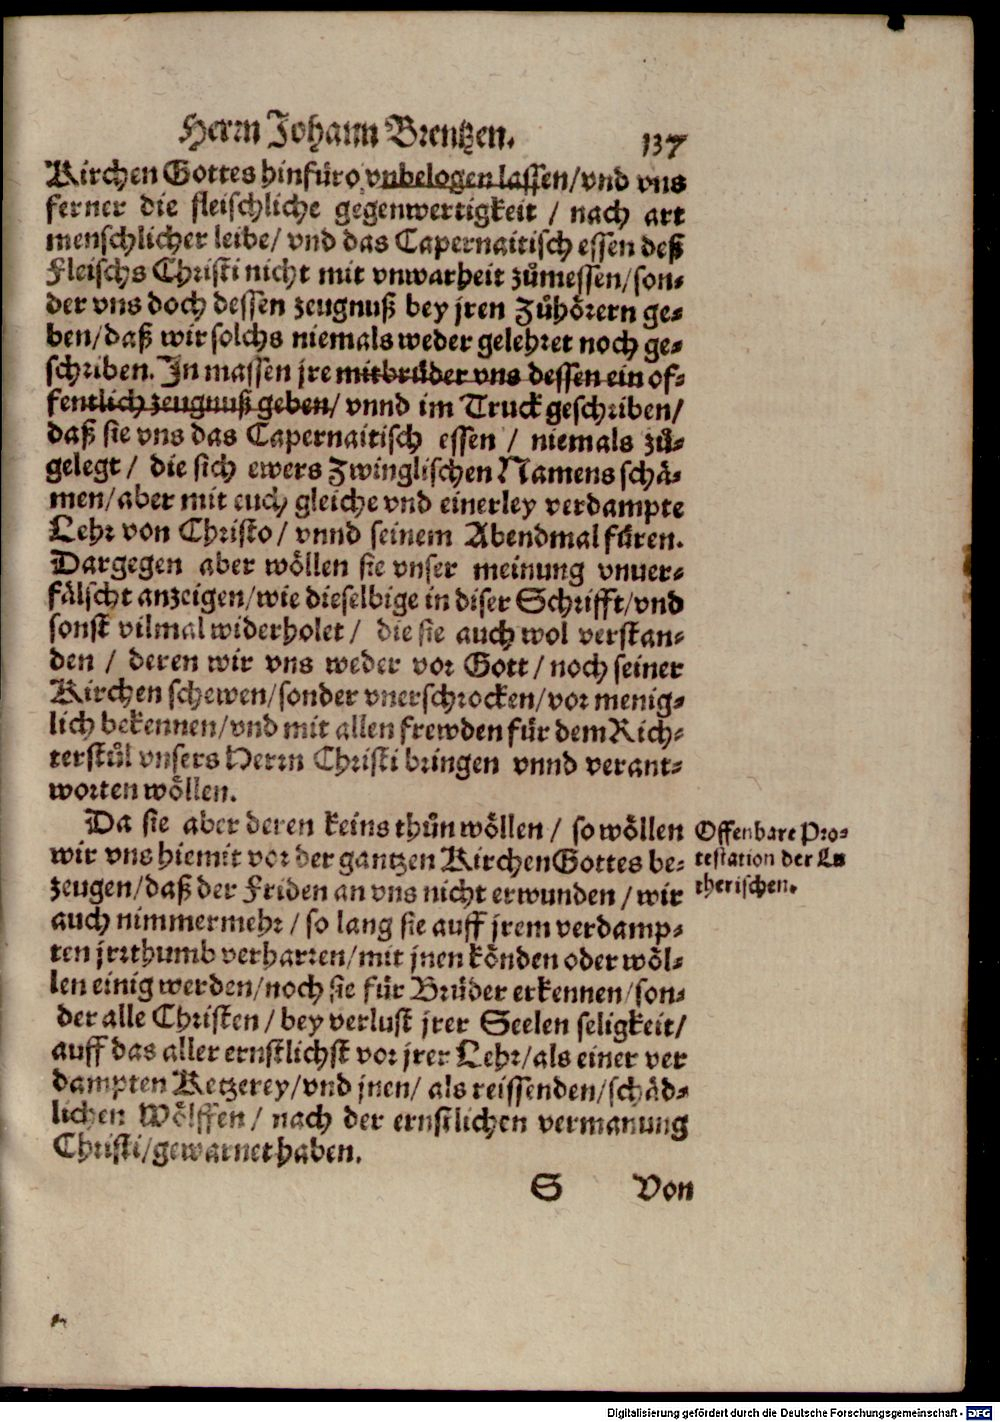 Herrn Johann Brentzen. 137
Kirchen Gottes hinfüro vnbelogen lassen/vnd vns
ferner die fleischliche gegenwertigkeit / nach art
menschlicher leibe/ vnd das Capernaitisch essen deß
Fleischs Christi nicht mit vnwarheit zůmessen/son-
der vns doch dessen zeugnuß bey jren Zůhörern ge-
ben/daß wir solchs niemals weder gelehret noch ge-
schriben. In massen jre mitbrüder vns dessen ein of-
fentlich zeugnuß geben/ vnnd im Truck geschriben/
daß sie vns das Capernaitisch essen / niemals zů-
gelegt / die sich ewers Zwinglischen Namens schä-
men/aber mit euch gleiche vnd einerley verdampte
Lehr von Christo/ vnnd seinem Abendmal füren.
Dargegen aber wöllen sie vnser meinung vnuer-
fälscht anzeigen/wie dieselbige in diser Schrifft/vnd
sonst vilmal widerholet / die sie auch wol verstan-
den / deren wir vns weder vor Gott/noch seiner
Kirchen schewen/sonder vnerschrocken/vor menig-
lich bekennen/vnd mit allen frewden für dem Rich-
terstůl vnsers Herrn Christi bringen vnnd verant-
worten wöllen.
Da sie aber deren keins thůn wöllen / so wöllen
wir vns hiemit vor der gantzen Kirchen Gottes be-
zeugen/daß der Friden an vns nicht erwunden / wir
auch nimmermehr / so lang sie auff jrem verdamp-
ten jrrthumb verharren/mit jnen könden oder wöl-
len einig werden/noch sie für Brüder erkennen/son-
der alle Christen / bey verlust jrer Seelen seligkeit/
auff das aller ernstlichst vor jrer Lehr/als einer ver
dampten Ketzerey/vnd jnen/ als reissenden/schäd-
lichen Wölffen / nach der ernstlichen vermanung
Christi/gewarnet haben.
Offenbare Pro-
testation der Lu
therischen.
S Von
Digitalisierung gefördert durch die Deutsche Forschungsgemeinschaft - DFG